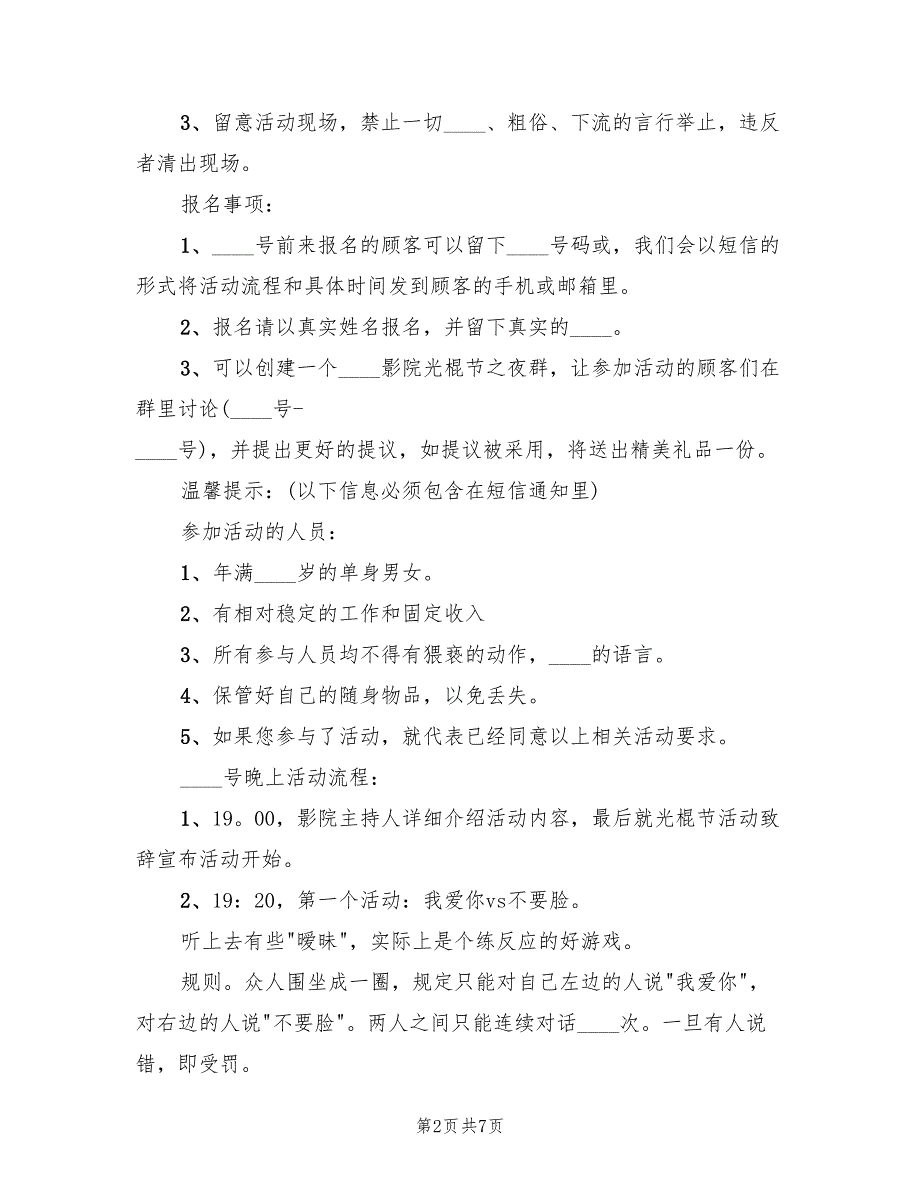 3、留意活动现场，禁止一切____、粗俗、下流的言行举止，违反
者清出现场。
报名事项：
1、____号前来报名的顾客可以留下____号码或，我们会以短信的
形式将活动流程和具体时间发到顾客的手机或邮箱里。
2、报名请以真实姓名报名，并留下真实的____。
3、可以创建一个____影院光棍节之夜群，让参加活动的顾客们在
群里讨论(____号-
____号)，并提出更好的提议，如提议被采用，将送出精美礼品一份。
温馨提示：(以下信息必须包含在短信通知里)
参加活动的人员：
1、年满____岁的单身男女。
2、有相对稳定的工作和固定收入
3、所有参与人员均不得有猥亵的动作，____的语言。
4、保管好自己的随身物品，以免丢失。
5、如果您参与了活动，就代表已经同意以上相关活动要求。
____号晚上活动流程：
1、19。00，影院主持人详细介绍活动内容，最后就光棍节活动致
辞宣布活动开始。
2、19：20，第一个活动：我爱你vs不要脸。
听上去有些"暧昧"，实际上是个练反应的好游戏。
规则。众人围坐成一圈，规定只能对自己左边的人说"我爱你"，
对右边的人说"不要脸"。两人之间只能连续对话____次。一旦有人说
错，即受罚。
第2页共7页